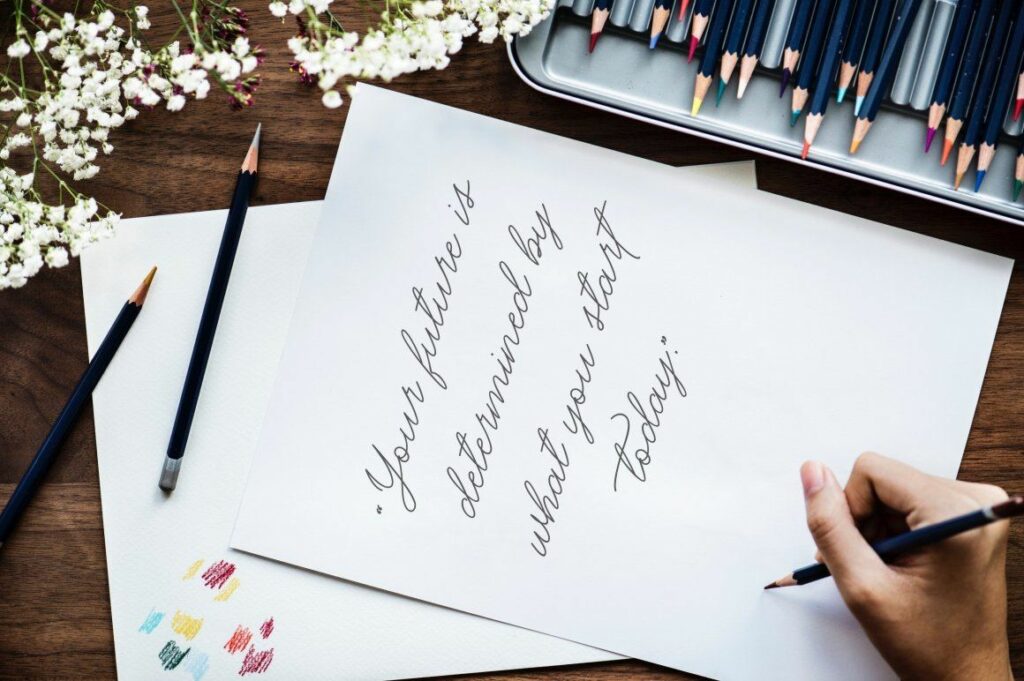 "Your future is
determined by
what you start
today."